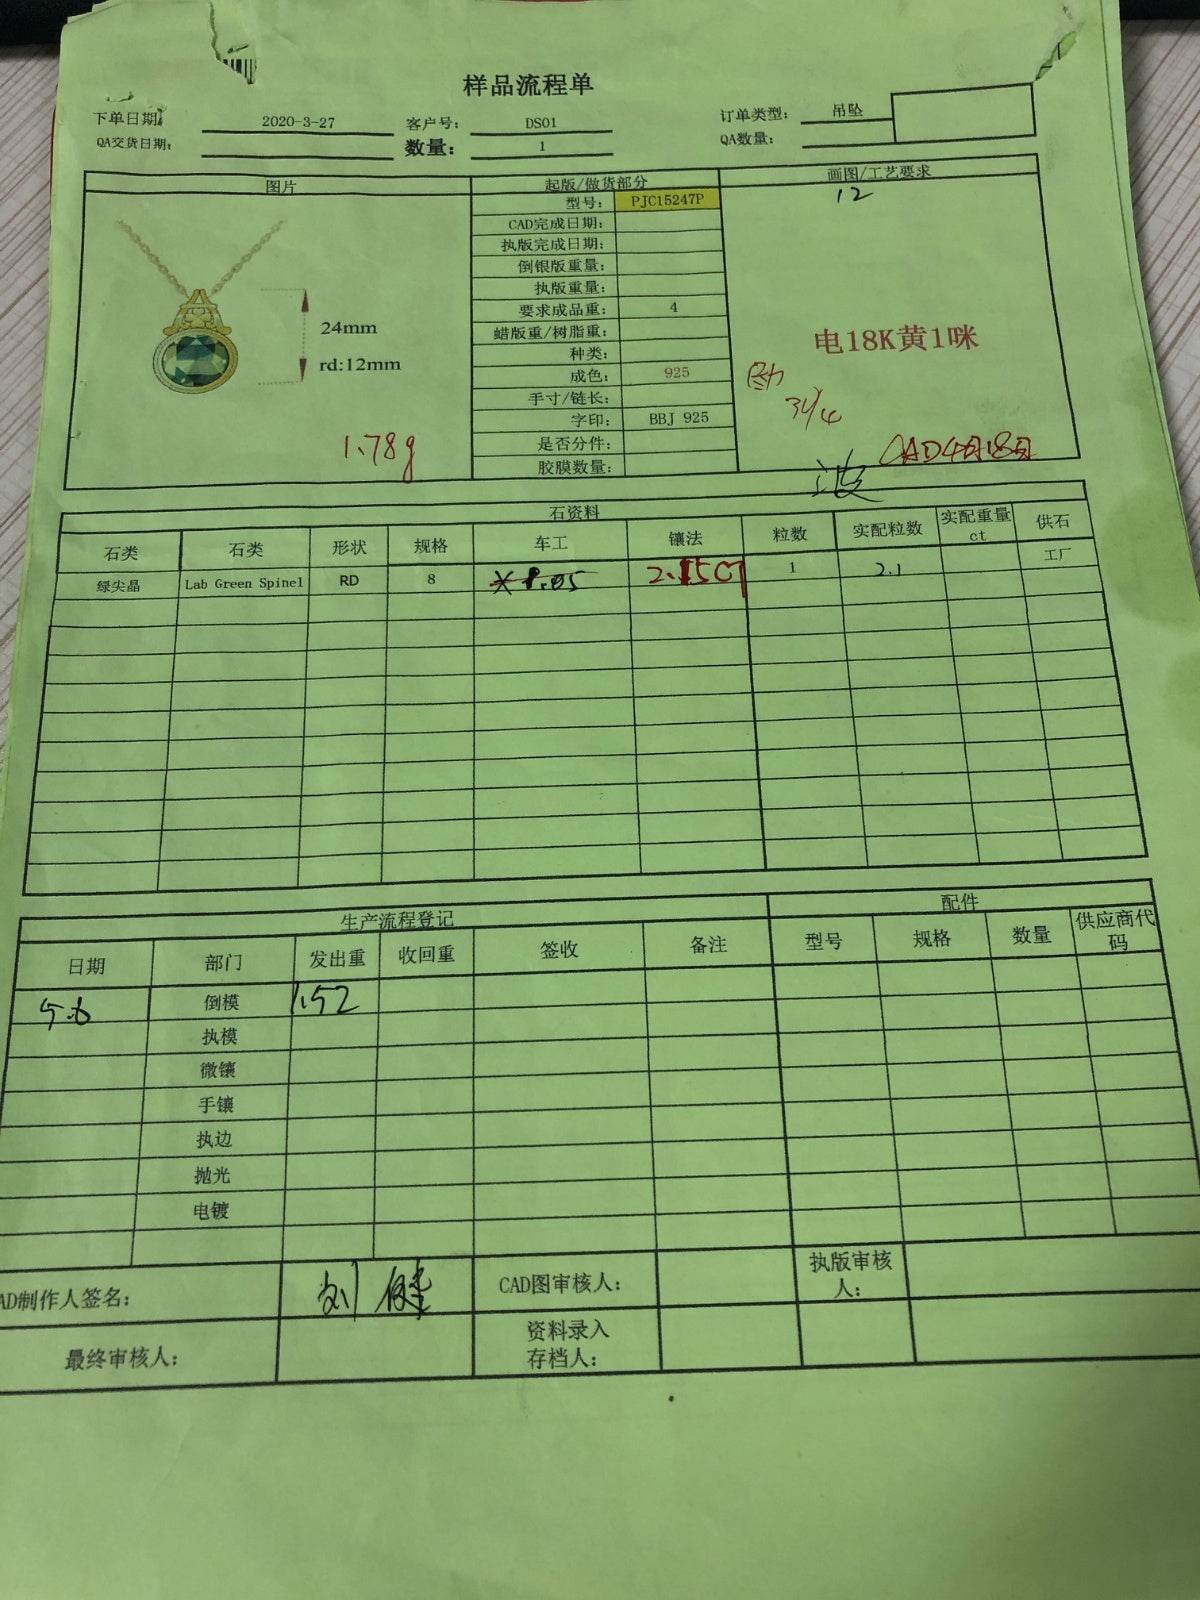 样品流程单
下单日期: 2020-3-27 客户号: DS01 订单类型: 吊坠
QA交货日期: 数量: 1 QA数量:
图片 起版/做货部分 画图/工艺要求
型号: PJC15247P 12
CAD完成日期:
执版完成日期:
倒银版重量:
执版重量:
24mm 要求成品重: 4
蜡版重/树脂重: 电18K黄1咪
rd:12mm 种类:
成色: 925
手寸/链长: 31/4
字印: BBJ 925
1.78g 是否分件: CAD4月18日
胶膜数量:
石资料
石类 石类 形状 规格 车工 镶法 粒数 实配粒数 实配重量ct 供石
绿尖晶 Lab Green Spinel RD 8 1 2.1 工厂
生产流程登记 配件
日期 部门 发出重 收回重 签收 备注 型号 规格 数量 供应商代码
5.6 倒模 1.52
执模
微镶
手镶
执边
抛光
电镀
AD制作人签名: CAD图审核人: 执版审核人:
最终审核人: 资料录入存档人: